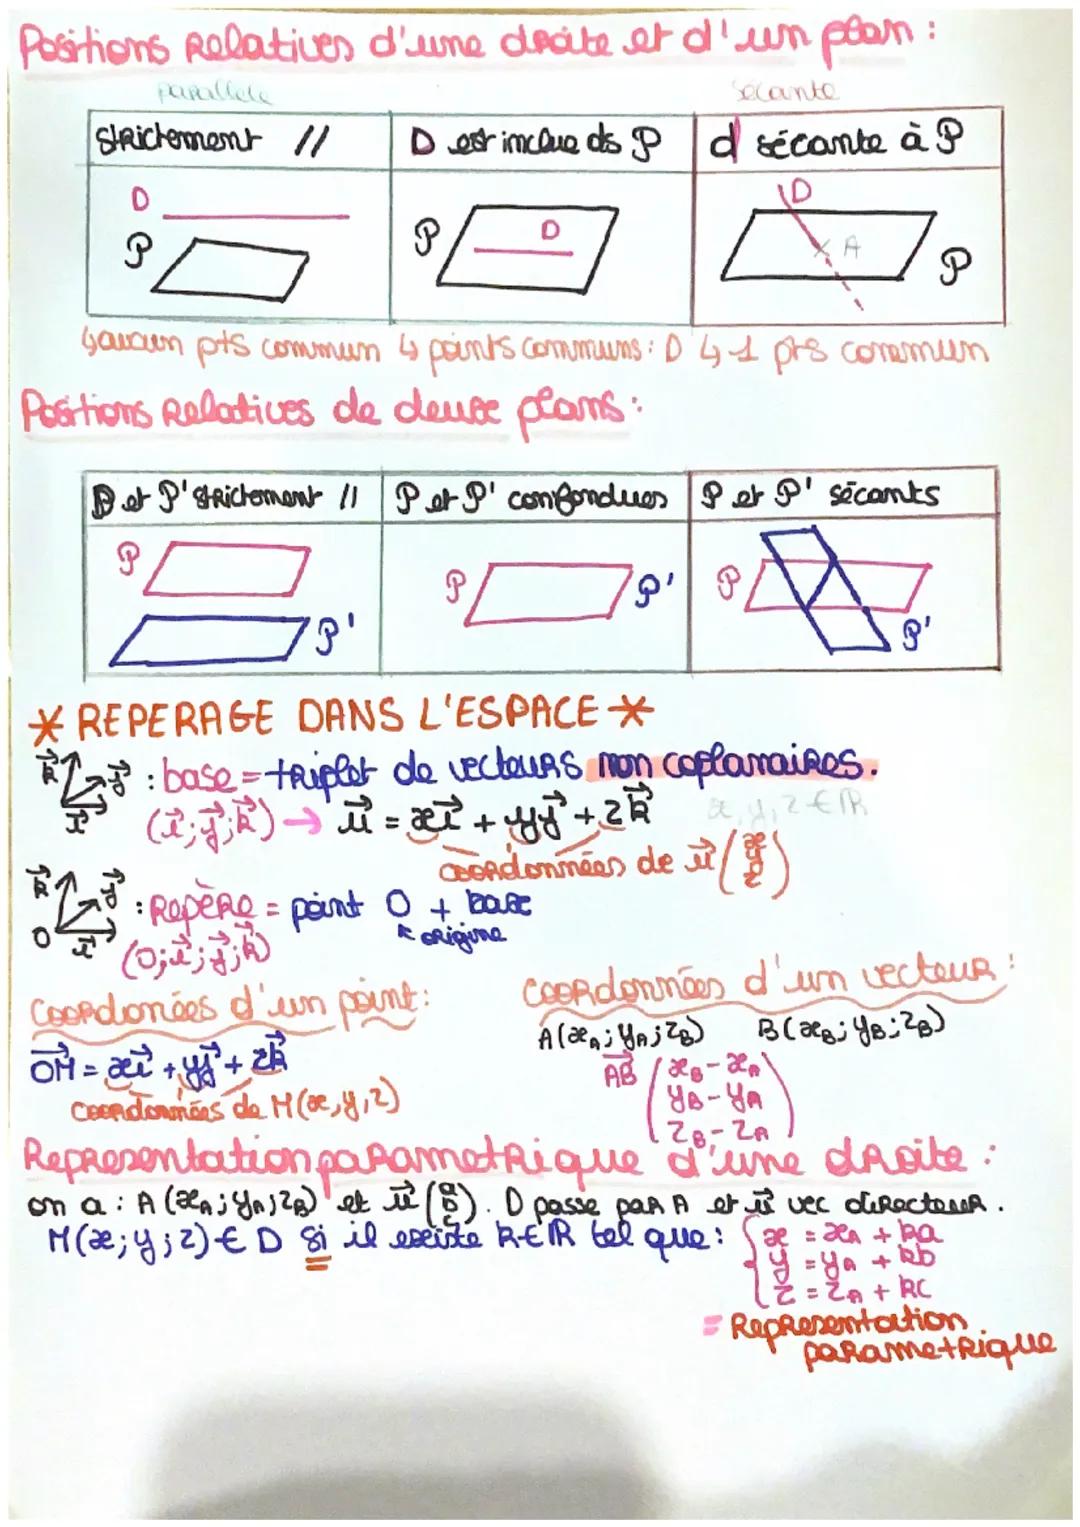 Positions Relatives d'une droite et d'un plan :
parallele
sécante
strictement //
D est inclue ds P
d sécante à P
D
P
P
D
D
A
P
↳ aucun pts commun ↳ points communs : D ↳ 1 pts commun
Positions Relatives de deux plans :
P et P' strictement //
P et P' confondues
P et P' sécants
P
P'
P
P'
P
P'
* REPERAGE DANS L'ESPACE *
k⃗ j⃗ i⃗ : base = triplet de vecteurs non coplanaires.
(i⃗; j⃗; k⃗) → u⃗ = xi⃗ + yj⃗ + zk⃗ x, y, z ∈ ℝ
coordonnées de u⃗ (x y z)
k⃗ j⃗ O i⃗ : Repère = point O + base
↖ origine
(O; i⃗; j⃗; k⃗)
Coordonées d'un point :
Coordonnées d'un vecteur :
OM⃗ = xi⃗ + yj⃗ + zk⃗
coordonnées de M(x, y, z)
A(xA; yA; zB) B(xB; yB; zB)
AB⃗ (xB - xA
yB - yA
zB - zA)
Representation parametrique d'une droite :
on a : A (xA; yA; zB) et u⃗ (a b c). D passe par A et u⃗ vec directeur.
M(x; y; z) ∈ D si il existe k ∈ ℝ tel que : { x = xA + ka
y = yA + kb
z = zA + kc
= Representation
parametrique